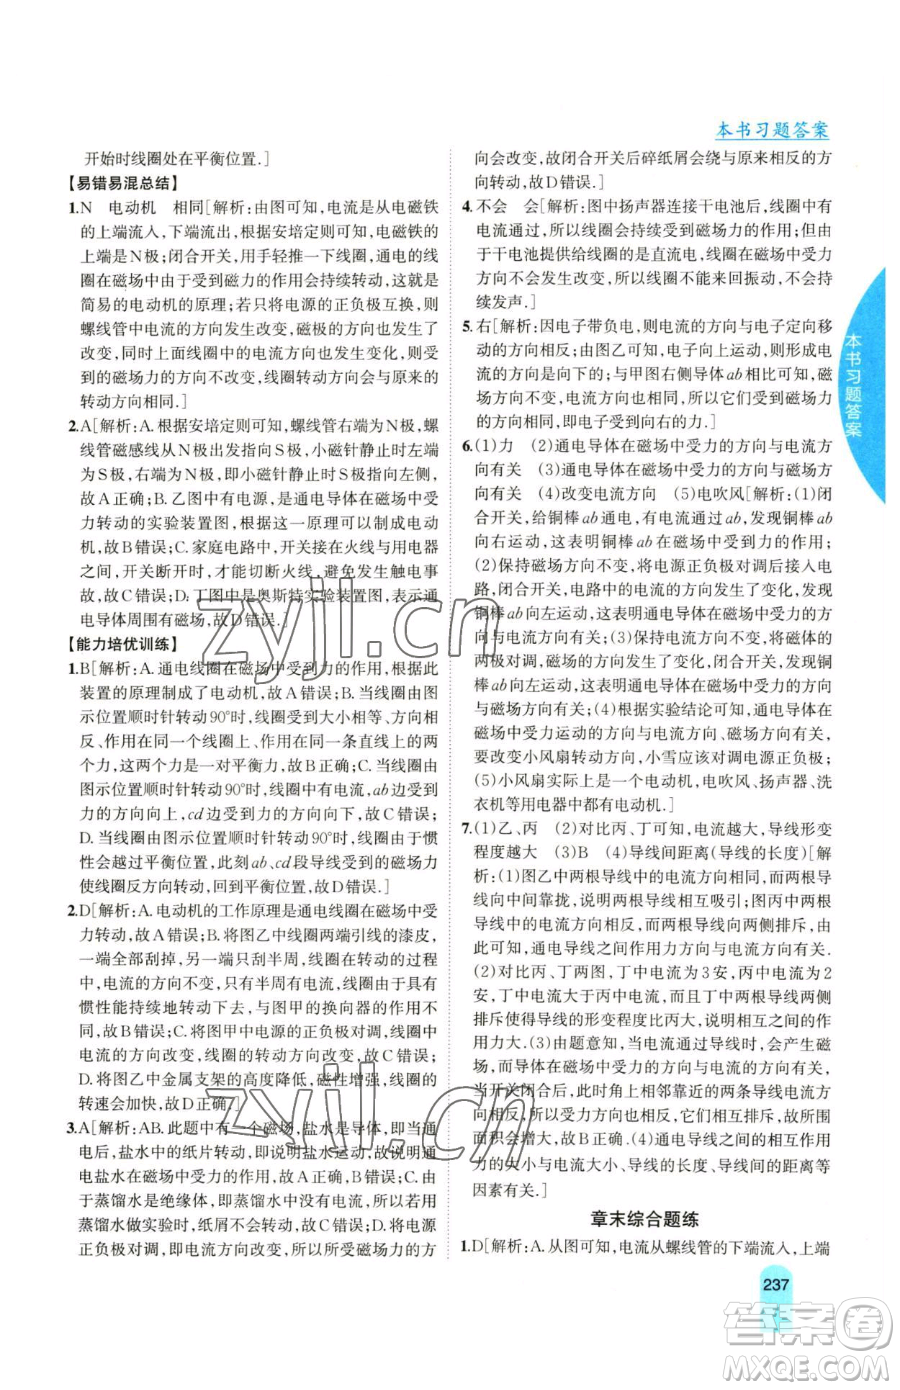 本书习题答案
开始时线圈处在平衡位置.]
【易错易混总结】
1.N 电动机 相同[解析:由图可知,电流是从电磁铁
的上端流入,下端流出,根据安培定则可知,电磁铁
的上端是N极;闭合开关,用手轻推一下线圈,通电的线
圈在磁场中由于受到磁力的作用会持续转动,这就是
简易的电动机的原理;若只将电源的正负极互换,则
螺线管中电流的方向发生改变,磁极的方向发生改变,
同时上面线圈中的电流方向也发生了变化,则线圈受
到的磁场力的方向不改变,线圈转动方向与原来的
转动方向相同.]
2.A[解析:A.根据安培定则可知,螺线管右端为N极,
螺线管磁感线从N极出发回到S极,小磁针静止时左端
为S极,右端为N极,小磁针静止时S极指向左侧,
故A正确;B.乙图中有电源,是通电导体在磁场中受
力转动的实验装置图,根据这一原理可以制成电动
机,故B错误;C.家庭电路中,开关接在火线与用电器
之间,开关断开时,才能切断火线,避免发生触电事
故,故C错误;D.丁图中是奥斯特实验装置图,表示通
电导体周围有磁场,故D错误.]
【能力培优训练】
1.B[解析:A.通电线圈在磁场中受到力的作用,根据此
装置的原理制成了电动机,故A错误;B.当线圈由图
示位置顺时针转动90°时,线圈受到大小相等、方向相
反、作用在同一个线圈上、作用在同一条直线上的两
个力,这两个力是一对平衡力,故B正确;C.当线圈由
图示位置顺时针转动90°时,线圈中有电流,ab边受到
的力方向向上,cd边受到的力的方向向下,故C错误;
D.当线圈由图示位置顺时针转动90°时,线圈由于惯
性会越过平衡位置,此刻ab、cd段导线受到的磁场力
使线圈反方向转动,回到平衡位置,故D错误.]
2.D[解析:A.电动机的工作原理是通电线圈在磁场中受
力转动,故A错误;B.将图乙中线圈两端引线的漆皮,
一端全部刮掉,另一端只刮半周,线圈在转动的过程
中,电流的方向不变,只有半周有电流,线圈由于具有
惯性能持续地转动下去,与图甲的换向器的作用不
同,故B错误;C.将图甲中电源的正负极对调,线圈中
电流的方向改变,线圈的转动方向会改变,故C错误;
D.将图乙中金属支架的高度降低,磁性增强,线圈的
转速会加快,故D正确.]
3.A[解析:AB.此题中有一个磁场,盐水是导体,在通电
盐水中的纸片转动,说明通电盐水在磁场中受力转动,说明
通电盐水在磁场中受到力的作用,故A正确,B错误;C.由
于蒸馏水是绝缘体,即蒸馏水中没有电流,所以若用
蒸馏水做实验时,纸屑不会转动,故C错误;D.电源正负
极对调,即电流方向改变,所以所以磁场力的方
向会改变,故闭合开关后碎纸屑会绕与原来相反的方
向转动,故D错误.]
4.不会 会[解析:图中扬声器连接干电池后,线圈中有
电流通过,所以线圈会受到磁场力的作用而运动;但
由于干电池提供给线圈的是直流电,线圈受磁场力
方向不会发生改变,所以线圈不能来回振动,不会持
续发声.]
5.右[解析:因电子带负电,则电流的方向与电子定向移
动的方向相反;由图乙可知,电子向上运动,则形成电
流的方向是向下的;与甲图右侧导体ab相比可知,磁
场方向不变,电流方向与ab中的电流方向相同,则受
力的方向相同,即电子受到向右的力.]
6.(1)力 (2)通电导体在磁场中受力的方向与电流方
向有关 (3)通电导体在磁场中受力的方向与磁场方
向有关 (4)改变电流方向 (5)电吹风[解析:(1)闭
合开关,给铜棒ab通电,有电流通过ab,发现铜棒ab
向右运动,这表明通电导体在磁场中受到力的作用;
(2)保持磁场方向不变,将电源两极对调后接入电
路,闭合开关,电路中电流的方向发生了变化,发现
铜棒ab向左运动,这表明通电导体在磁场中受力的
方向与电流方向有关;(3)保持电流方向不变,将磁体
的两极对调,磁场的方向发生改变,闭合开关,发现铜
棒ab向左运动,这表明通电导体在磁场中受力的方向
与磁场方向有关;(4)根据实验结论可知,通电导体在
磁场中受力方向与电流方向和磁场方向有关,所以
要改变小风扇转动方向,小雪应该对调电源正负极;
(5)小风扇实际上是一个电动机,电吹风、扬声器、洗
衣机等用电器中都有电动机.]
7.(1)乙、丙 (2)对比丙、丁可知,电流越大,导线形变
程度越大 (3)B (4)导线间距离(导线的长度)[解
析:(1)图乙中两根导线中的电流方向相同,两根导
线向中间靠拢,故导线相互吸引;图丙中两根导线中
的电流方向相反,两根导线向两侧形变,故导线相互
排斥,可知,通电导线之间作用力方向与电流方向有关.
(2)对比丙、丁两图,丙图中电流为3安,丁中电流为2
安,丁中电流大于丙中电流,而且丁中两根导线向两侧
排斥所导致的形变程度比丙大,可知,电流越大,相互
作用力越大.(3)由题意知,当电流通过导线时,会产生磁
场,而导体在磁场中受力的方向与电流的方向有关,
当开关闭合后,此时角上相邻靠近的两条导线电流方
向相反,它们之间的相互作用力表现为排斥,故所围
面积会增大,故选B.(4)通电导线之间的相互作用
力的大小与电流大小、导线的长度、导线间的距离等
因素有关.]
章末综合题练
1.D[解析:A.从图可知,电流从螺线管的下端流入,上端
本书习题答案
237
zyjl.cn
zyjl.cn
答案圈
MXQE.COM